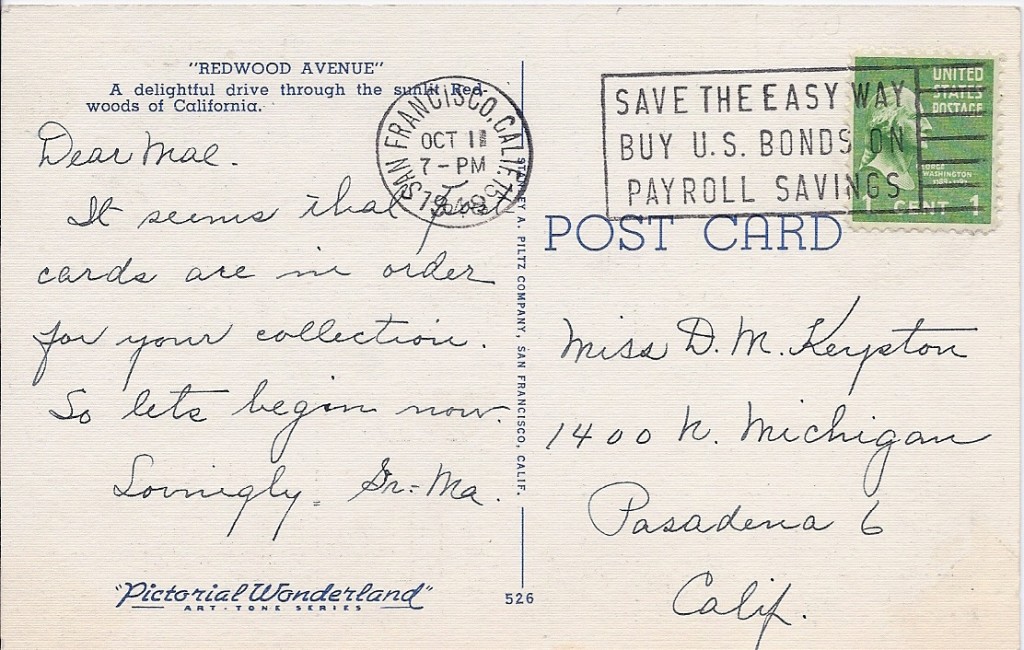 "REDWOOD AVENUE"
A delightful drive through the sunlit Red-
woods of California.
Dear Mae.
It seems that post
cards are in order
for your collection.
So lets begin now.
Lovingly. Gr=Ma.
"Pictorial Wonderland"
ART-TONE SERIES
SAN FRANCISCO, CALIF. 15
OCT 11
7-PM
1948
STANLEY A. PILTZ COMPANY, SAN FRANCISCO, CALIF.
526
SAVE THE EASY WAY
BUY U.S. BONDS ON
PAYROLL SAVINGS
UNITED
STATES
POSTAGE
GEORGE
WASHINGTON
1 CENT 1
POST CARD
Miss D. M. Keyston
1400 N. Michigan
Pasadena 6
Calif.